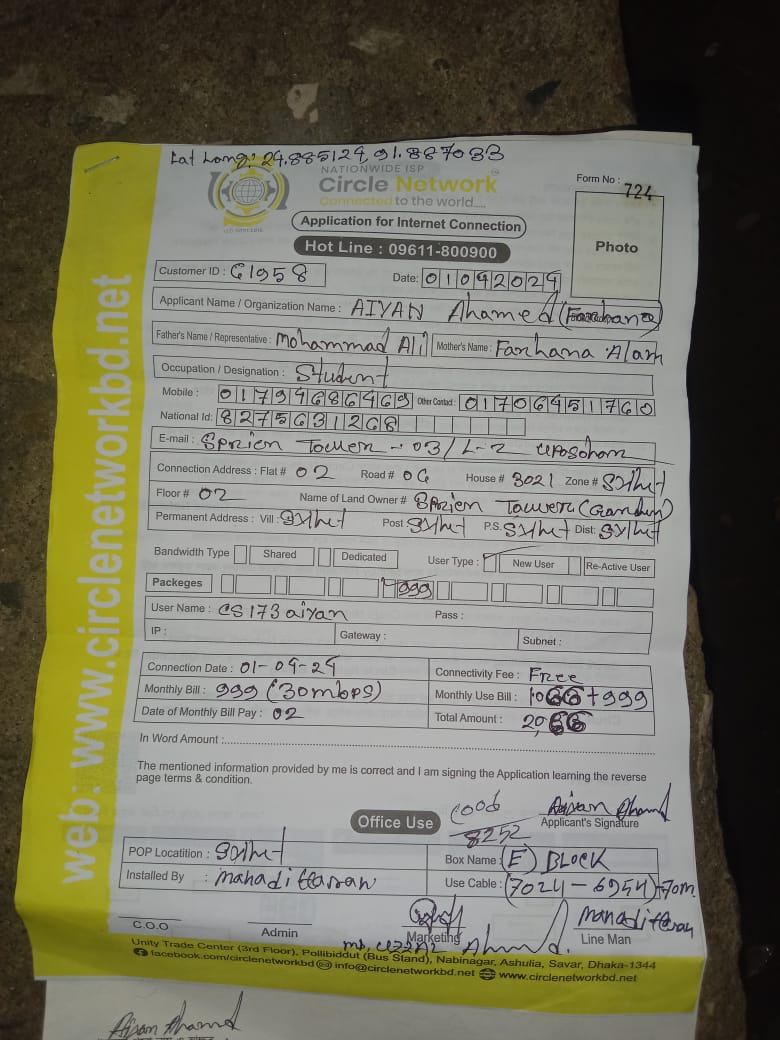 Lat Long: 24.885124, 91.887033
NATIONWIDE ISP
Circle Network
Connected to the world.....
Form No : 724
Application for Internet Connection
Hot Line : 09611-800900
Photo
Customer ID : 61958
Date: 01042024
Applicant Name / Organization Name : AIYAN Ahamed (Farhana)
Father's Name / Representative : Mohammad Ali Mother's Name : Farhana Alam
Occupation / Designation : Student
Mobile : 01794686469 Other Contact : 01706451760
National Id: 8275631268
E-mail : Tower - 03/L-2 uposohom
Connection Address : Flat # 02 Road # 0G House # 3021 Zone # Sylhet
Floor # 02 Name of Land Owner # Tower (Garden)
Permanent Address : Vill : Sylhet Post Sylhet P.S. Sylhet Dist: Sylhet
Bandwidth Type Shared Dedicated User Type : New User Re-Active User
Packeges 999
User Name : CS173aiyan Pass :
IP : Gateway : Subnet :
Connection Date : 01-04-24 Connectivity Fee : Free
Monthly Bill : 999 (30mbps) Monthly Use Bill : 1066+999
Date of Monthly Bill Pay : 02 Total Amount :
In Word Amount :
The mentioned information provided by me is correct and I am signing the Application learning the reverse
page terms & condition.
Office Use
8252
Aiyan Ahamd
Applicant's Signature
POP Locatition : Sylhet Box Name : (E) BLOCK
Installed By : Mahadi Hassan Use Cable : (7024 - 6954) 70m
C.O.O Admin Marketing Line Man
Mahadi Hassan
Unity Trade Center (3rd Floor), Pollibiddut (Bus Stand), Nabinagar, Ashulia, Savar, Dhaka-1344
facebook.com/circlenetworkbd info@circlenetworkbd.net www.circlenetworkbd.net
web: www.circlenetworkbd.net
Aiyan Ahamd